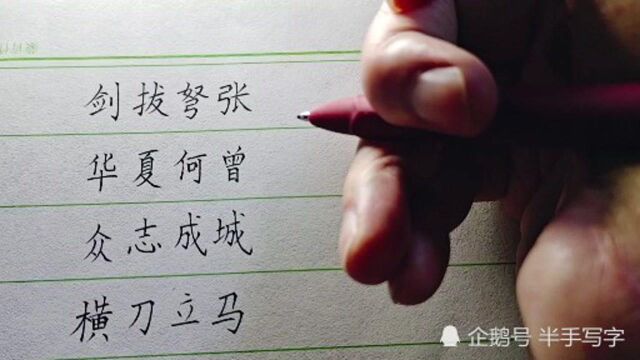 剑拔弩张
华夏何曾
众志成城
横刀立马
企鹅号 半手写字